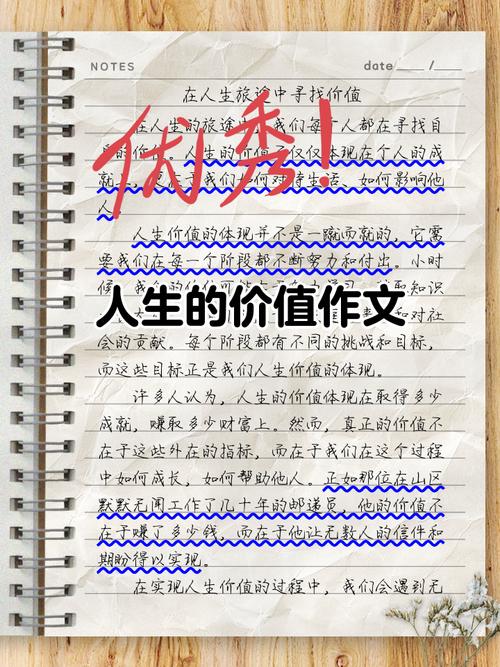 NOTES
date ___ / ___
在人生旅途中寻找价值
优秀!
在人生的旅途 我们每 人都在寻找自
的 人生的价值 仅仅体现在个人的成
就 我们如何对待生活、如何影响他
人
人生价值的体现并不是一蹴而就的，它需
要我们在每一个阶段都不断努力和付出。小时
候 知识
人生的价值作文
和对社
会的贡献。每个阶段都有不同的挑战和目标，
而这些目标正是我们人生价值的体现。
许多人认为，人生的价值体现在取得多少
成就，赚取多少财富上。然而，真正的价值不
在于这些外在的指标，而在于我们在这个过程
中如何成长，如何帮助他人。正如那位在山区
默默无闻工作了几十年的邮递员，他的价值不
在于赚了多少钱，而在于他让无数人的信件和
期盼得以实现。
在实现人生价值的过程中，我们会遇到无